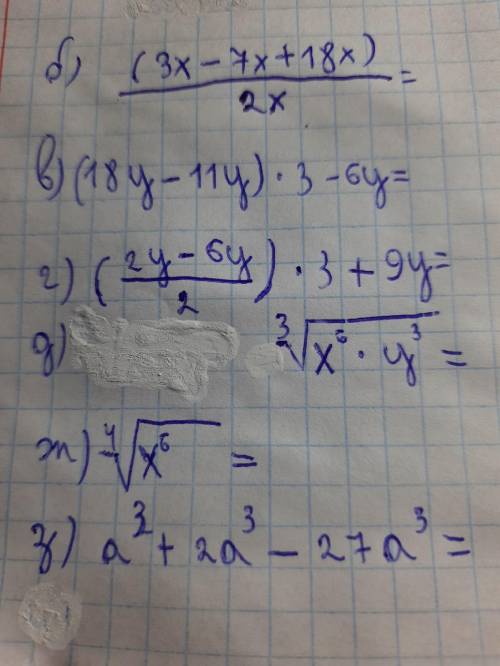 б) (3x - 7x + 18x) / 2x =
в) (18y - 11y) · 3 - 6y =
г) ((2y - 6y) / 2) · 3 + 9y =
д) ∛(x⁶ · y³) =
ж) ∜(x⁶) =
з) a³ + 2a³ - 27a³ =